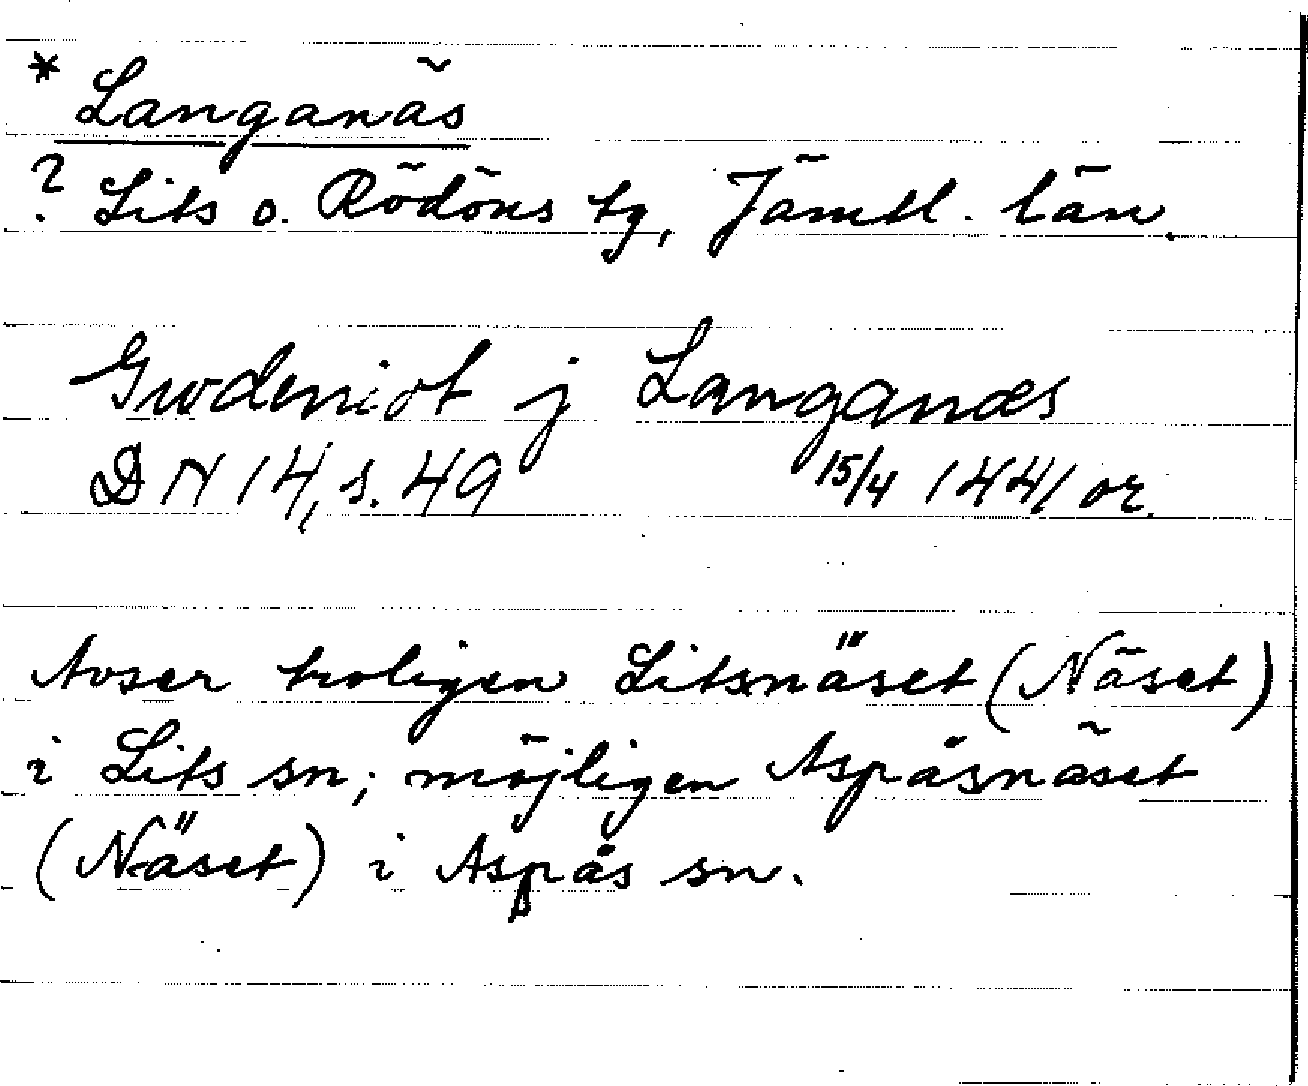 * Langanäs
? Lits o. Rödöns tg, Jämtl. län.
Gudenict j Langanæs
DN 14, s. 49 15/4 1441 or.
Avser troligen Litsnäset (Näset)
i Lits sn; möjligen Aspåsnäset
(Näset) i Aspås sn.